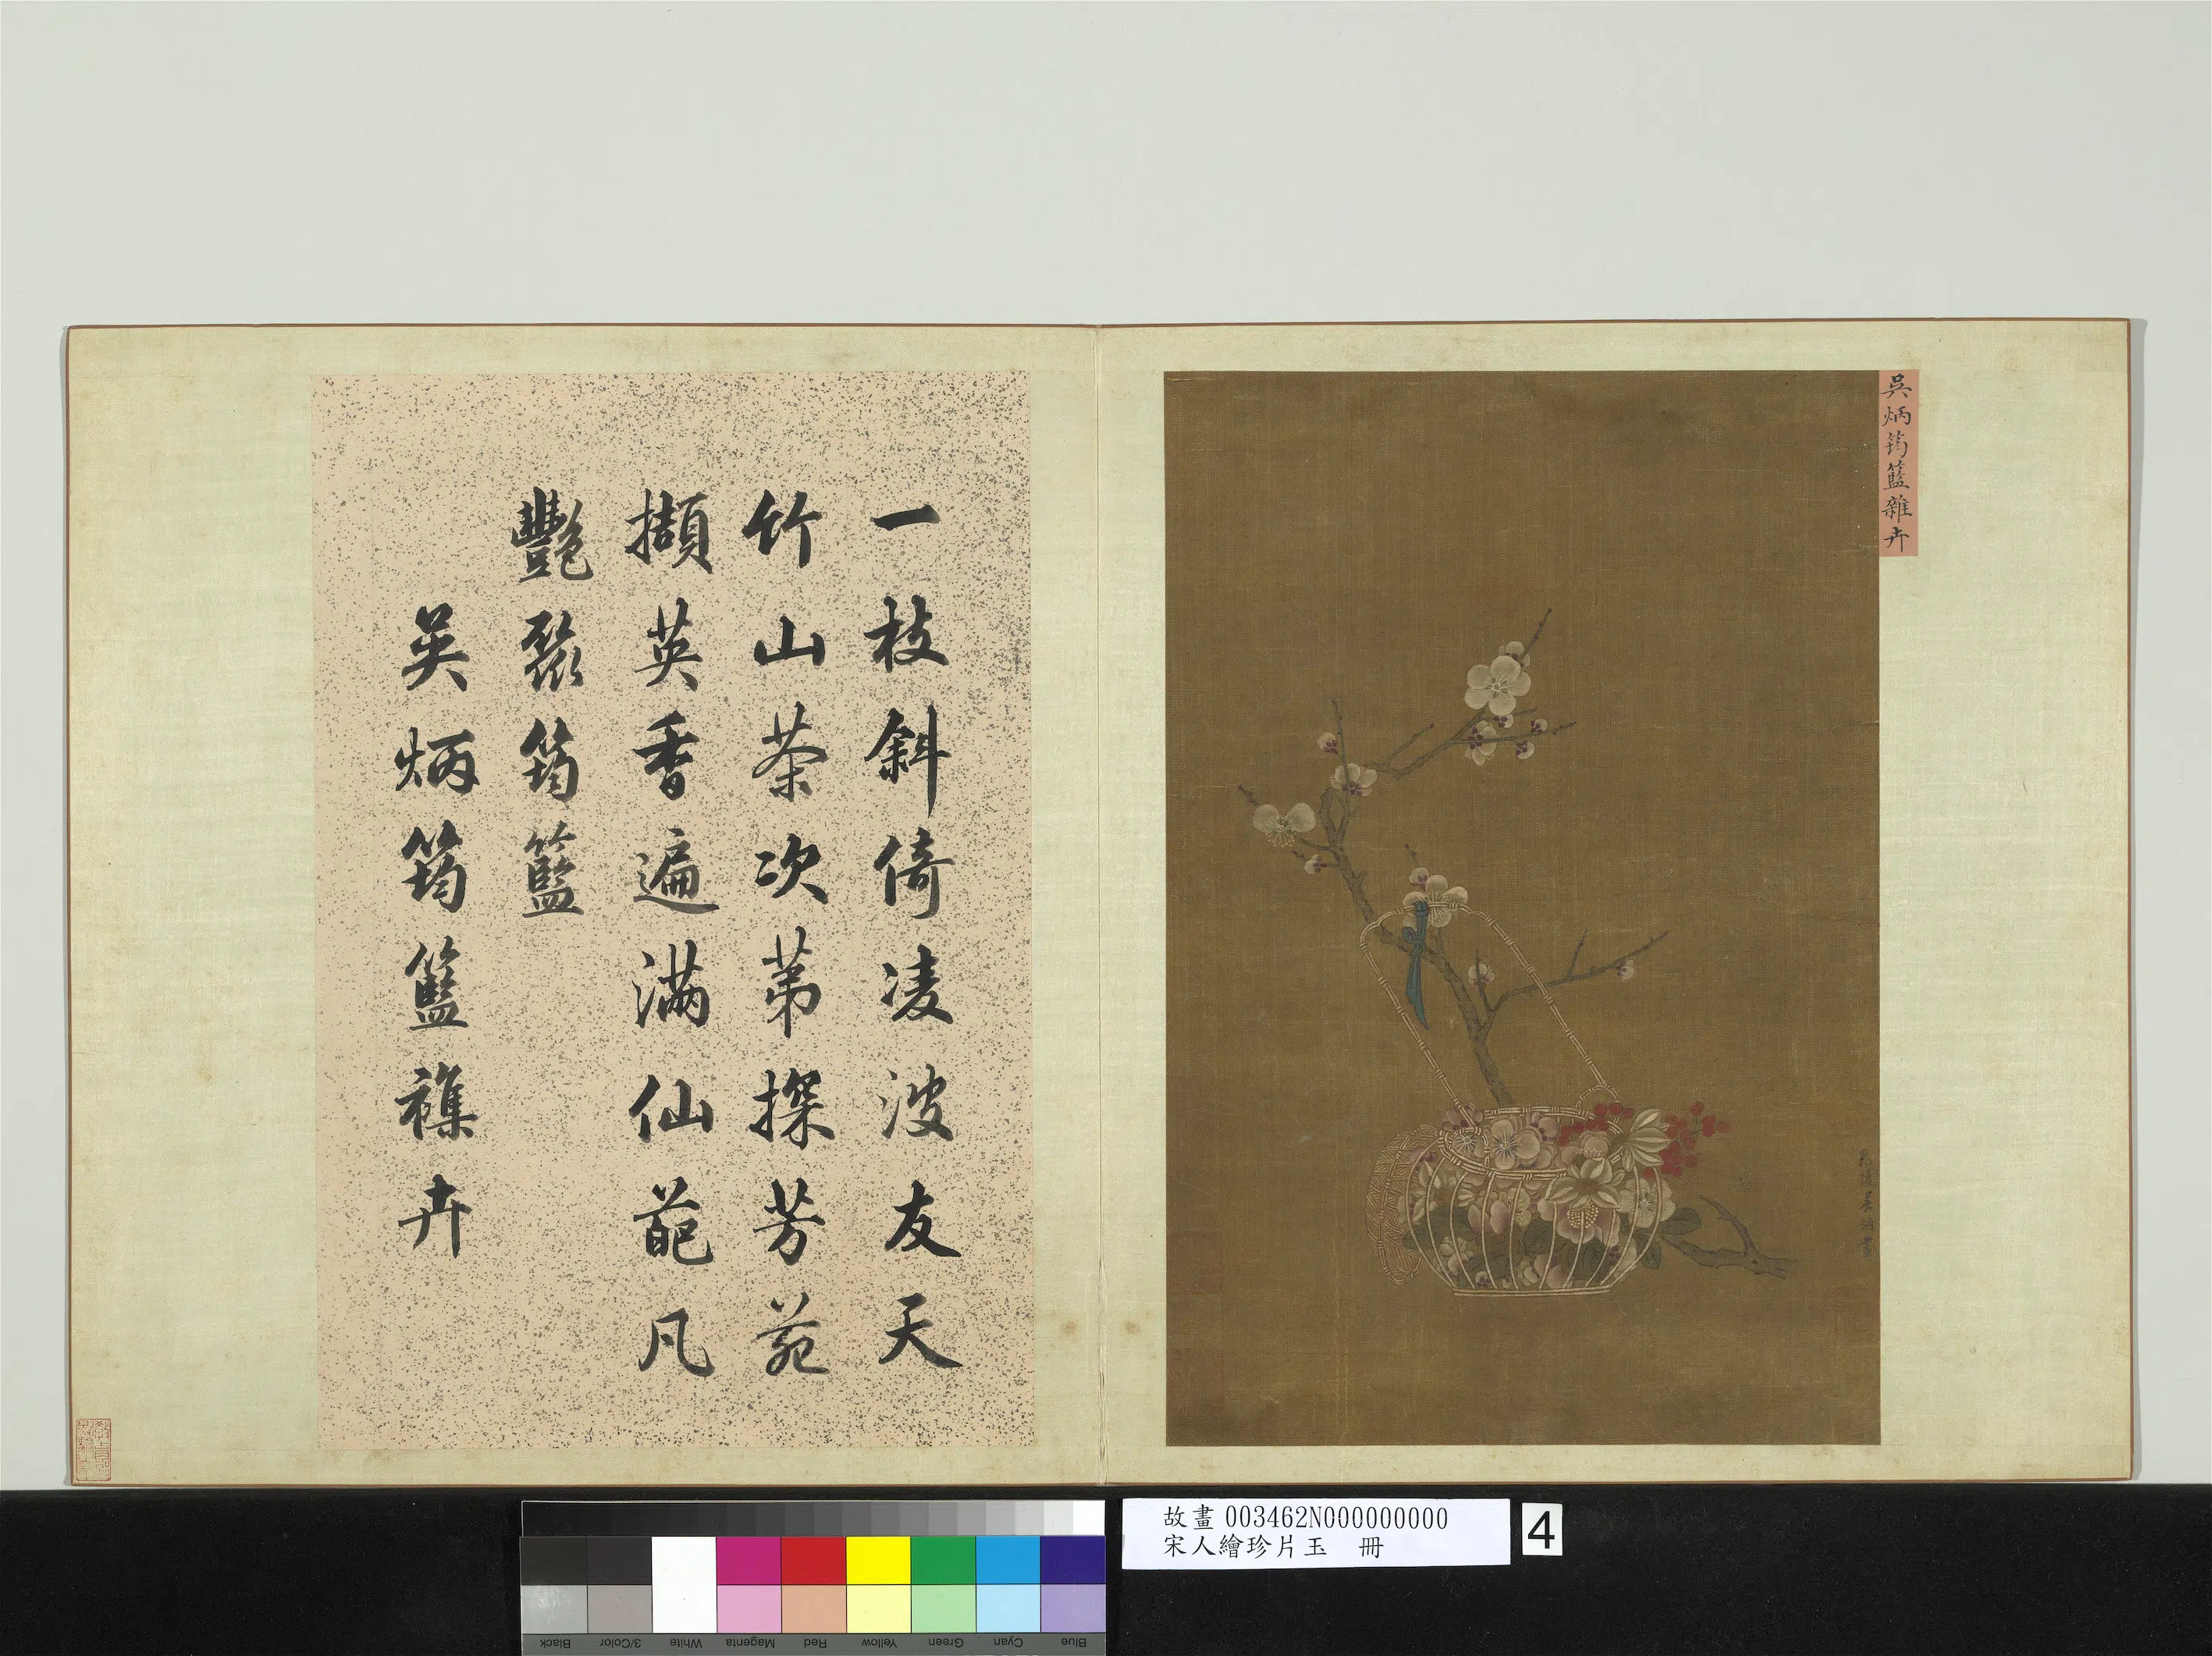 吳炳筠籃雜卉
毘陵吳炳畫
一枝斜倚凌波友天
竹山茶次第探芳苑
擷英香遍滿仙葩凡
豔聚筠籃
吳炳筠籃襍卉
故畫 003462N000000000
宋人繪珍片玉 冊
4
Black
3/Color
White
Magenta
Red
Yellow
Green
Cyan
Blue